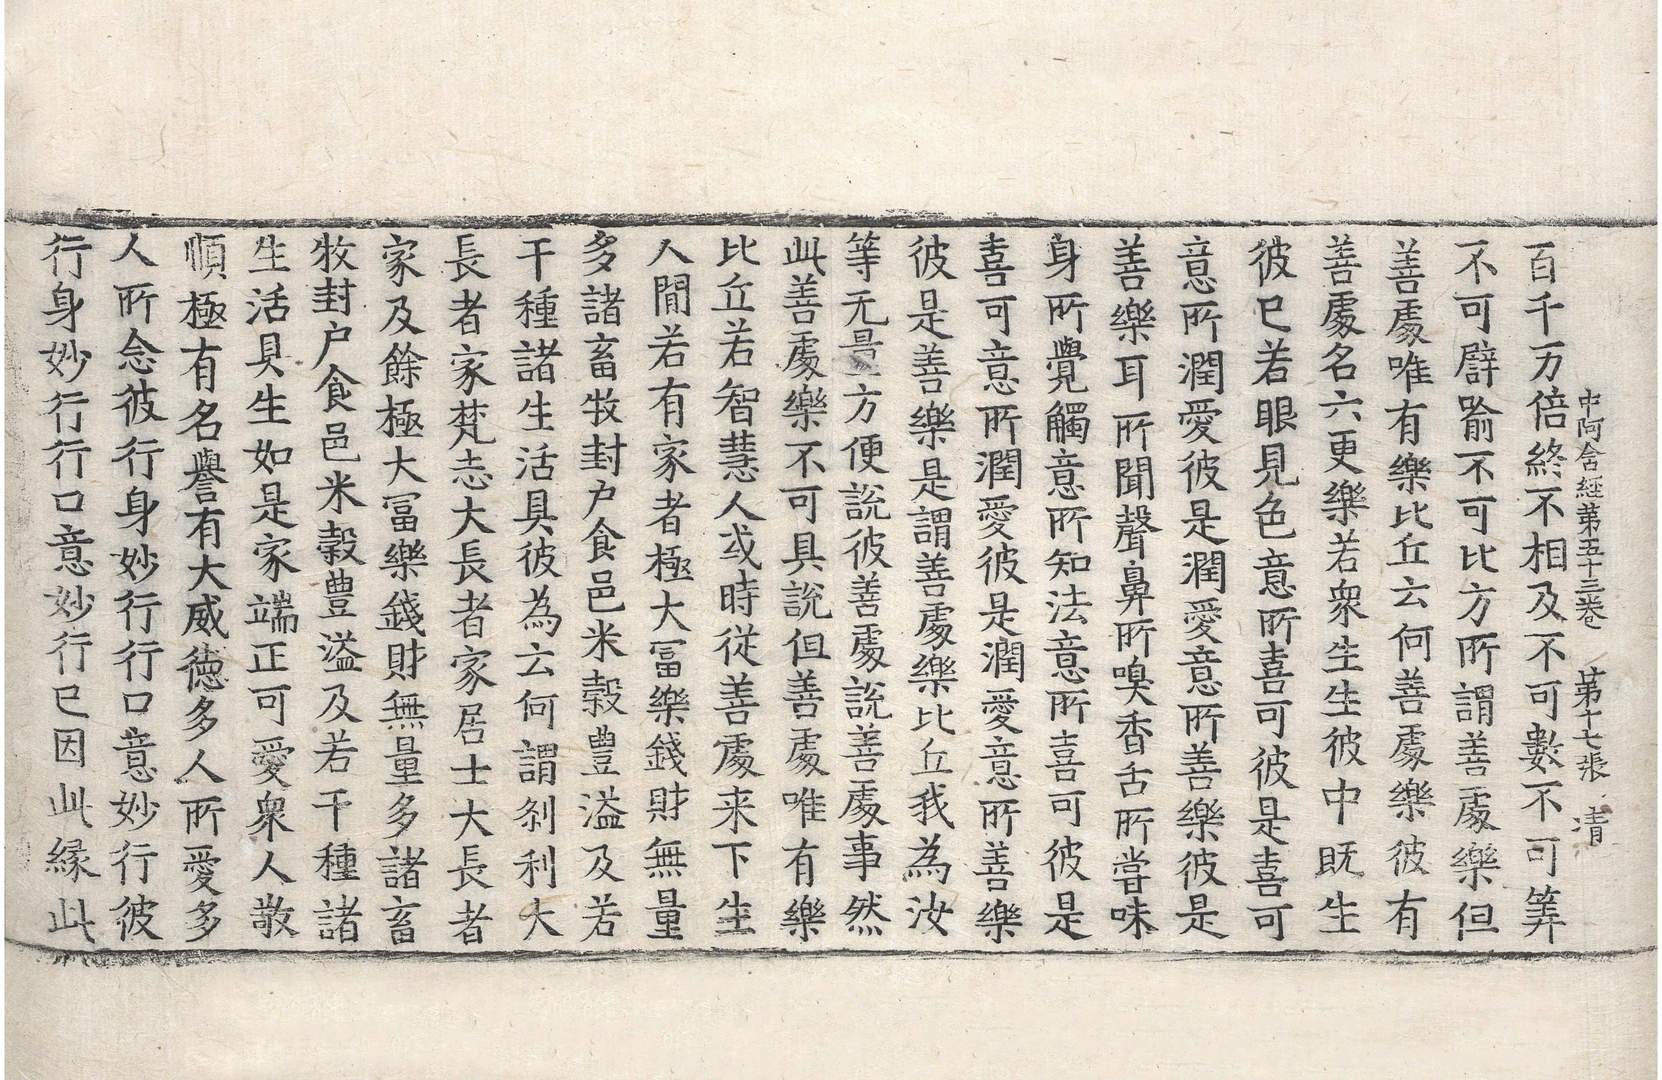 中阿含經第五十三卷 第十七張 清
百千万倍終不相及不可數不可筭
不可譬喻不可比方所謂善處樂但
善處唯有樂比丘云何善處樂彼有
善處名六更樂若衆生生彼中既生
彼已若眼見色意所喜可彼是喜可
意所潤愛彼是潤愛意所善樂彼是
善樂耳所聞聲鼻所嗅香舌所嘗味
身所覺觸意所知法意所喜可彼是
喜可意所潤愛彼是潤愛意所善樂
彼是善樂是謂善處樂比丘我為汝
等无量方便說彼善處說善處事然
此善處樂不可具說但善處唯有樂
比丘若智慧人或時從善處来下生
人閒若有家者極大冨樂錢財無量
多諸畜牧封户食邑米穀豊溢及若
干種諸生活具彼為云何謂刹利大
長者家梵志大長者家居士大長者
家及餘極大冨樂錢財無量多諸畜
牧封户食邑米穀豊溢及若干種諸
生活具生如是家端正可愛衆人敬
順極有名譽有大威德多人所愛多
人所念彼行身妙行行口意妙行彼
行身妙行行口意妙行已因此縁此